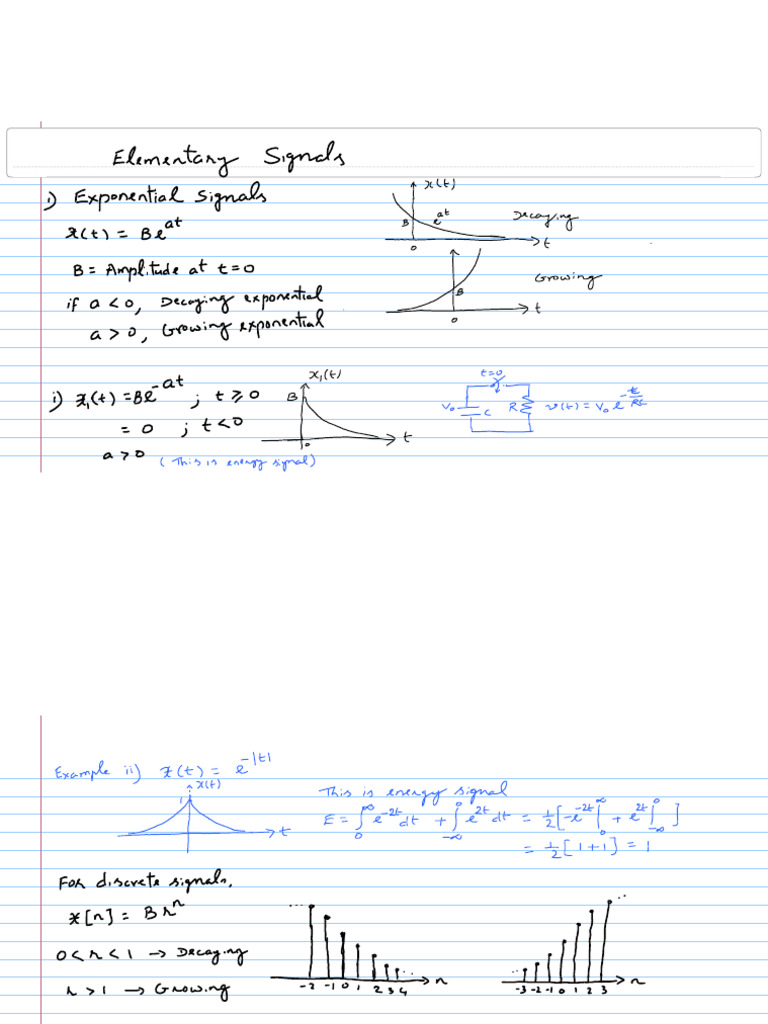 Elementary Signals
i) Exponential Signals
x(t) = Be^at
B = Amplitude at t=0
if a < 0, Decaying exponential
a > 0, Growing exponential
x(t)
B
e^at
Decaying
0
t
Growing
B
0
t
i) x₁(t) = Be^-at ; t ≥ 0
= 0 ; t < 0
a > 0
(This is energy signal)
x₁(t)
B
0
t
t=0
V₀
C
R
v(t) = V₀ e^-t/RC
Example ii) x(t) = e^-|t|
x(t)
1
t
This is energy signal
E = ∫₀^∞ e^-2t dt + ∫_-∞^0 e^2t dt = 1/2 [-e^-2t |₀^∞ + e^2t |_-∞^0]
= 1/2 [1+1] = 1
For discrete signals,
x[n] = Br^n
0 < r < 1 → Decaying
r > 1 → Growing
... -2 -1 0 1 2 3 4 ... n
-3 -2 -1 0 1 2 3 ... n